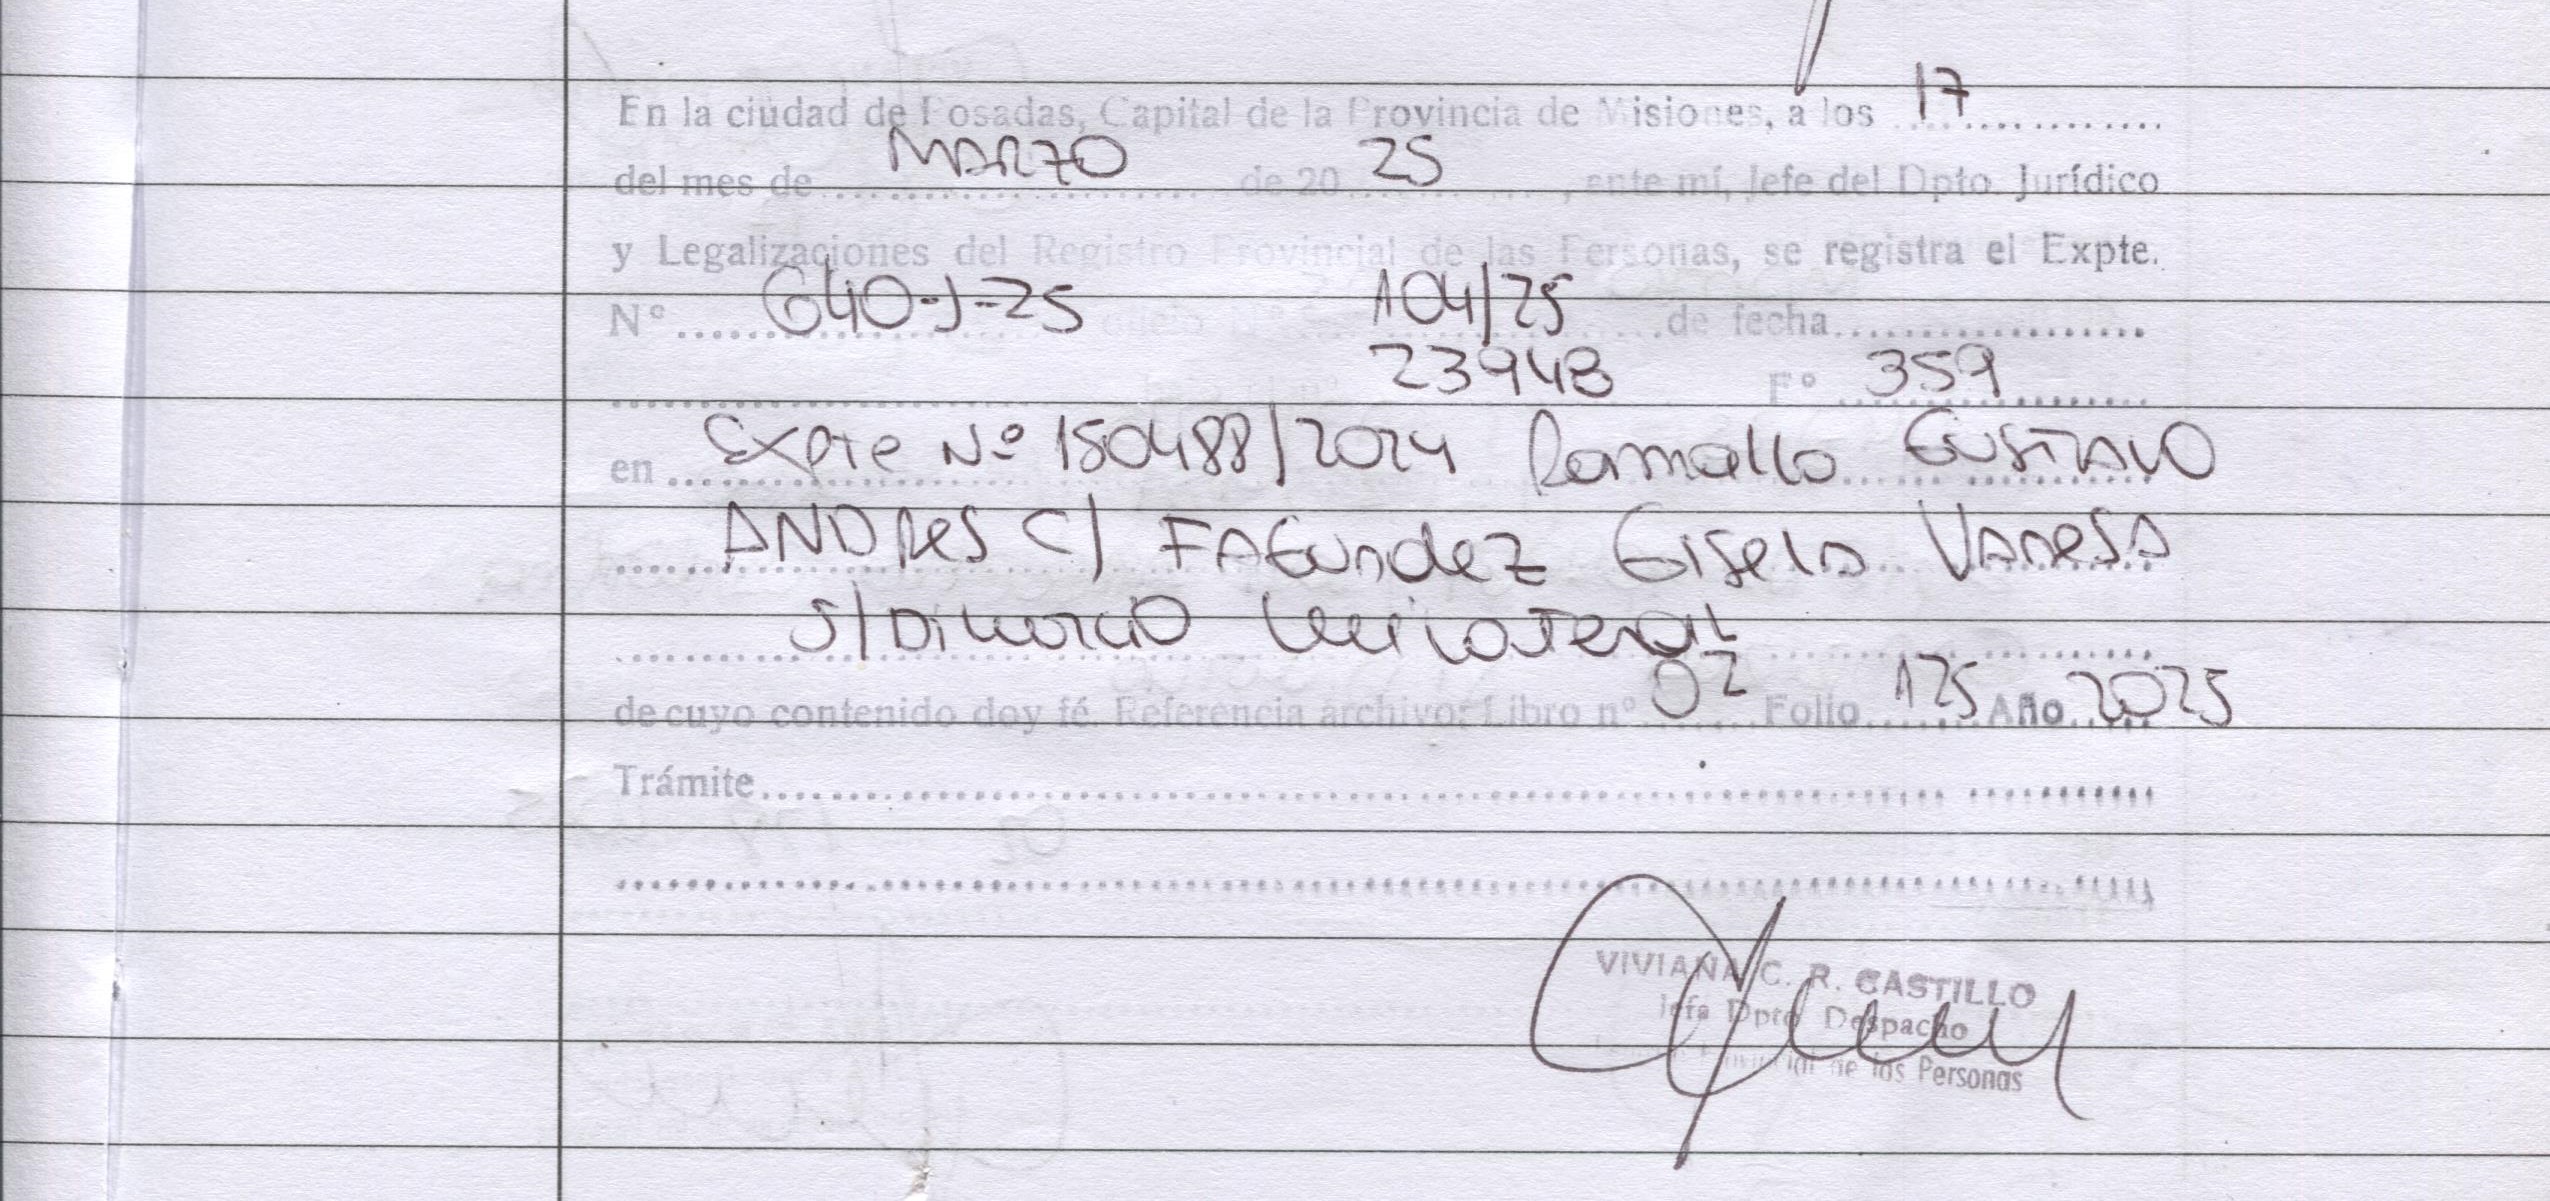 En la ciudad de Posadas, Capital de la Provincia de Misiones, a los 17
del mes de MARZO de 20 25, ante mí, Jefe del Dpto. Jurídico
y Legalizaciones del Registro Provincial de las Personas, se registra el Expte.
Nº 640-J-25 oficio 104/25 de fecha
23948 Fº 359
en Expte Nº 150488/2024 Ramallo GUSTAVO
ANDRES C/ FAGUNDEZ Gisela VANESA
S/ Divorcio Unilateral
de cuyo contenido doy fé. Referencia archivo: Libro nº 02 Folio 125 Año 2025
Trámite
VIVIANA C. R. CASTILLO
Jefa Dpto Despacho
Provincial de las Personas